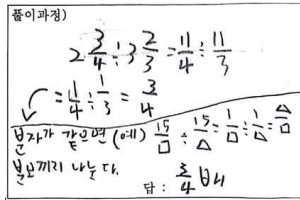 풀이과정)
2 3/4 ÷ 3 2/3 = 11/4 ÷ 11/3
= 1/4 ÷ 1/3 = 3/4
분자가 같으면 (예) 15/□ ÷ 15/△ = 1/□ ÷ 1/△ = △/□
분모끼리 나눈다.
답 : 3/4 배